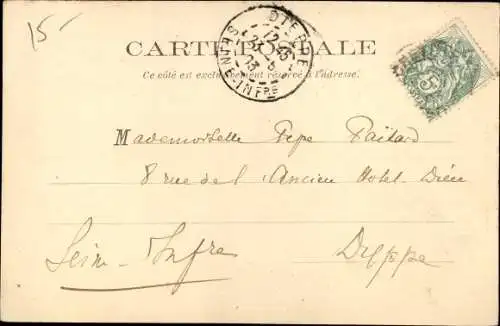 15-
CARTE POSTALE
Ce côté est exclusivement réservé à l'adresse.
DIEPPE
12 45
23 - 5
03
SEINE-INFRE
5
M
Mademoiselle Pepe Paitard
8 rue de l'Ancien Hotel-Dieu
Sein-Infre
Dieppe